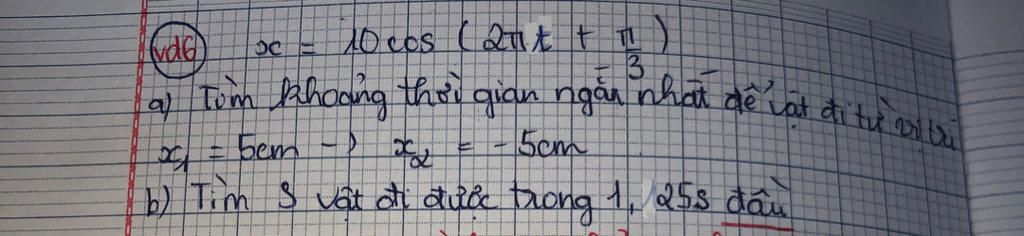 vd6 x = 10cos (2πt + π/3)
a) Tìm khoảng thời gian ngắn nhất để vật đi từ vị trí
x₁ = 5cm → x₂ = -5cm
b) Tìm S vật đi được trong 1,25s đầu